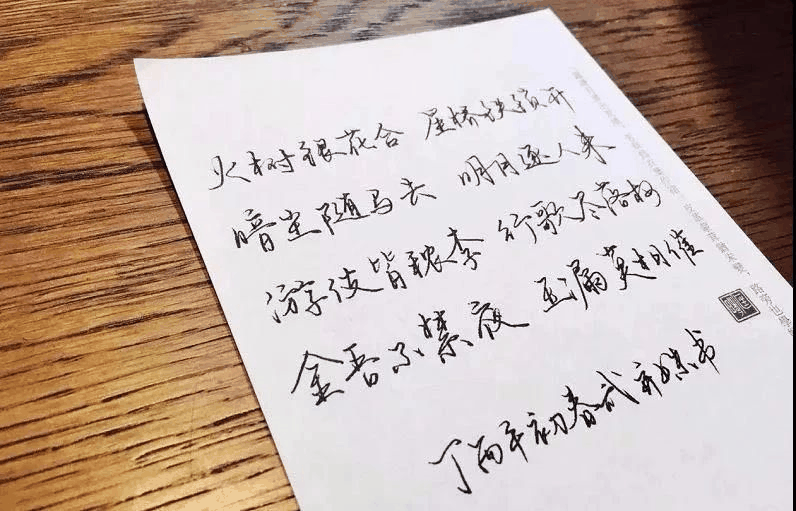 火树银花合 星桥铁锁开
暗尘随马去 明月逐人来
游伎皆秾李 行歌尽落梅
金吾不禁夜 玉漏莫相催
丁酉年初春 书
路旁也學